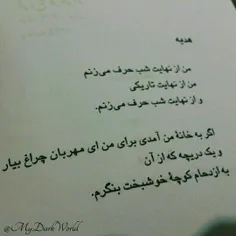 هدیه
من از نهایت شب حرف می‌زنم
من از نهایت تاریکی
و از نهایت شب حرف می‌زنم.
اگر به خانهٔ من آمدی برای من ای مهربان چراغ بیار
و یک دریچه که از آن
به ازدحام کوچهٔ خوشبخت بنگرم.
@MyDarkWorld